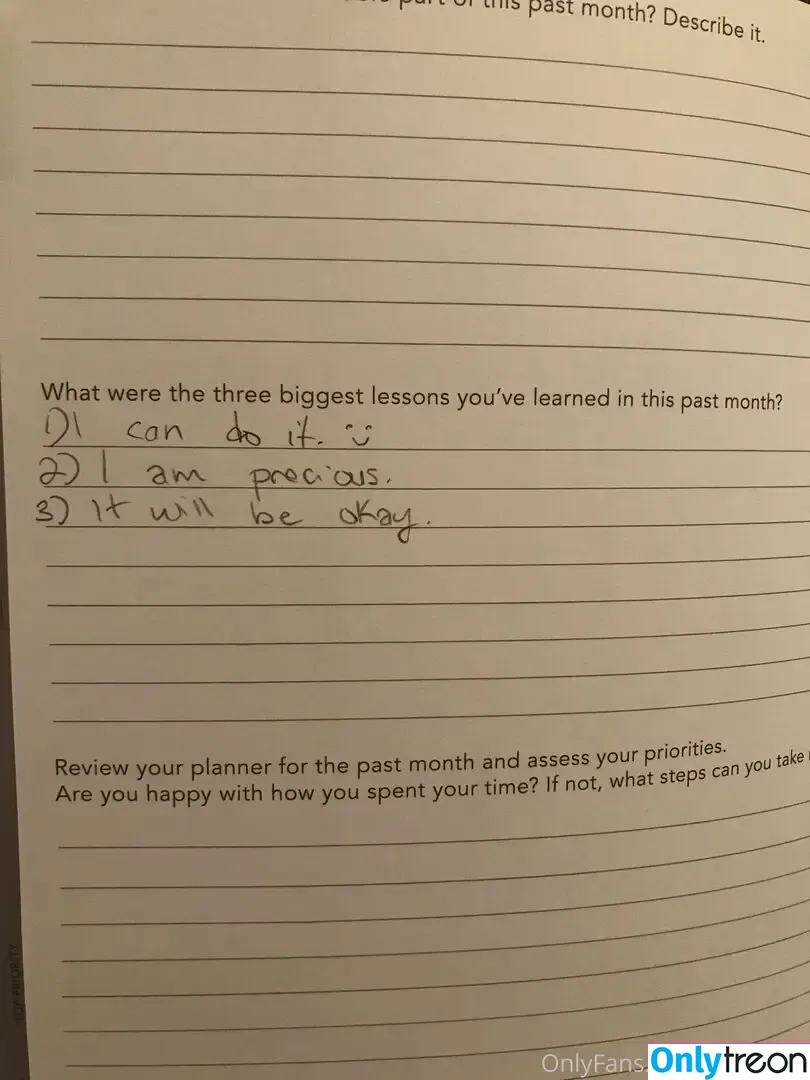 part of this past month? Describe it.
What were the three biggest lessons you've learned in this past month?
1) I can do it. :)
2) I am precious.
3) It will be okay.
Review your planner for the past month and assess your priorities.
Are you happy with how you spent your time? If not, what steps can you take
TOP PRIORITY
OnlyFans
Onlytreon